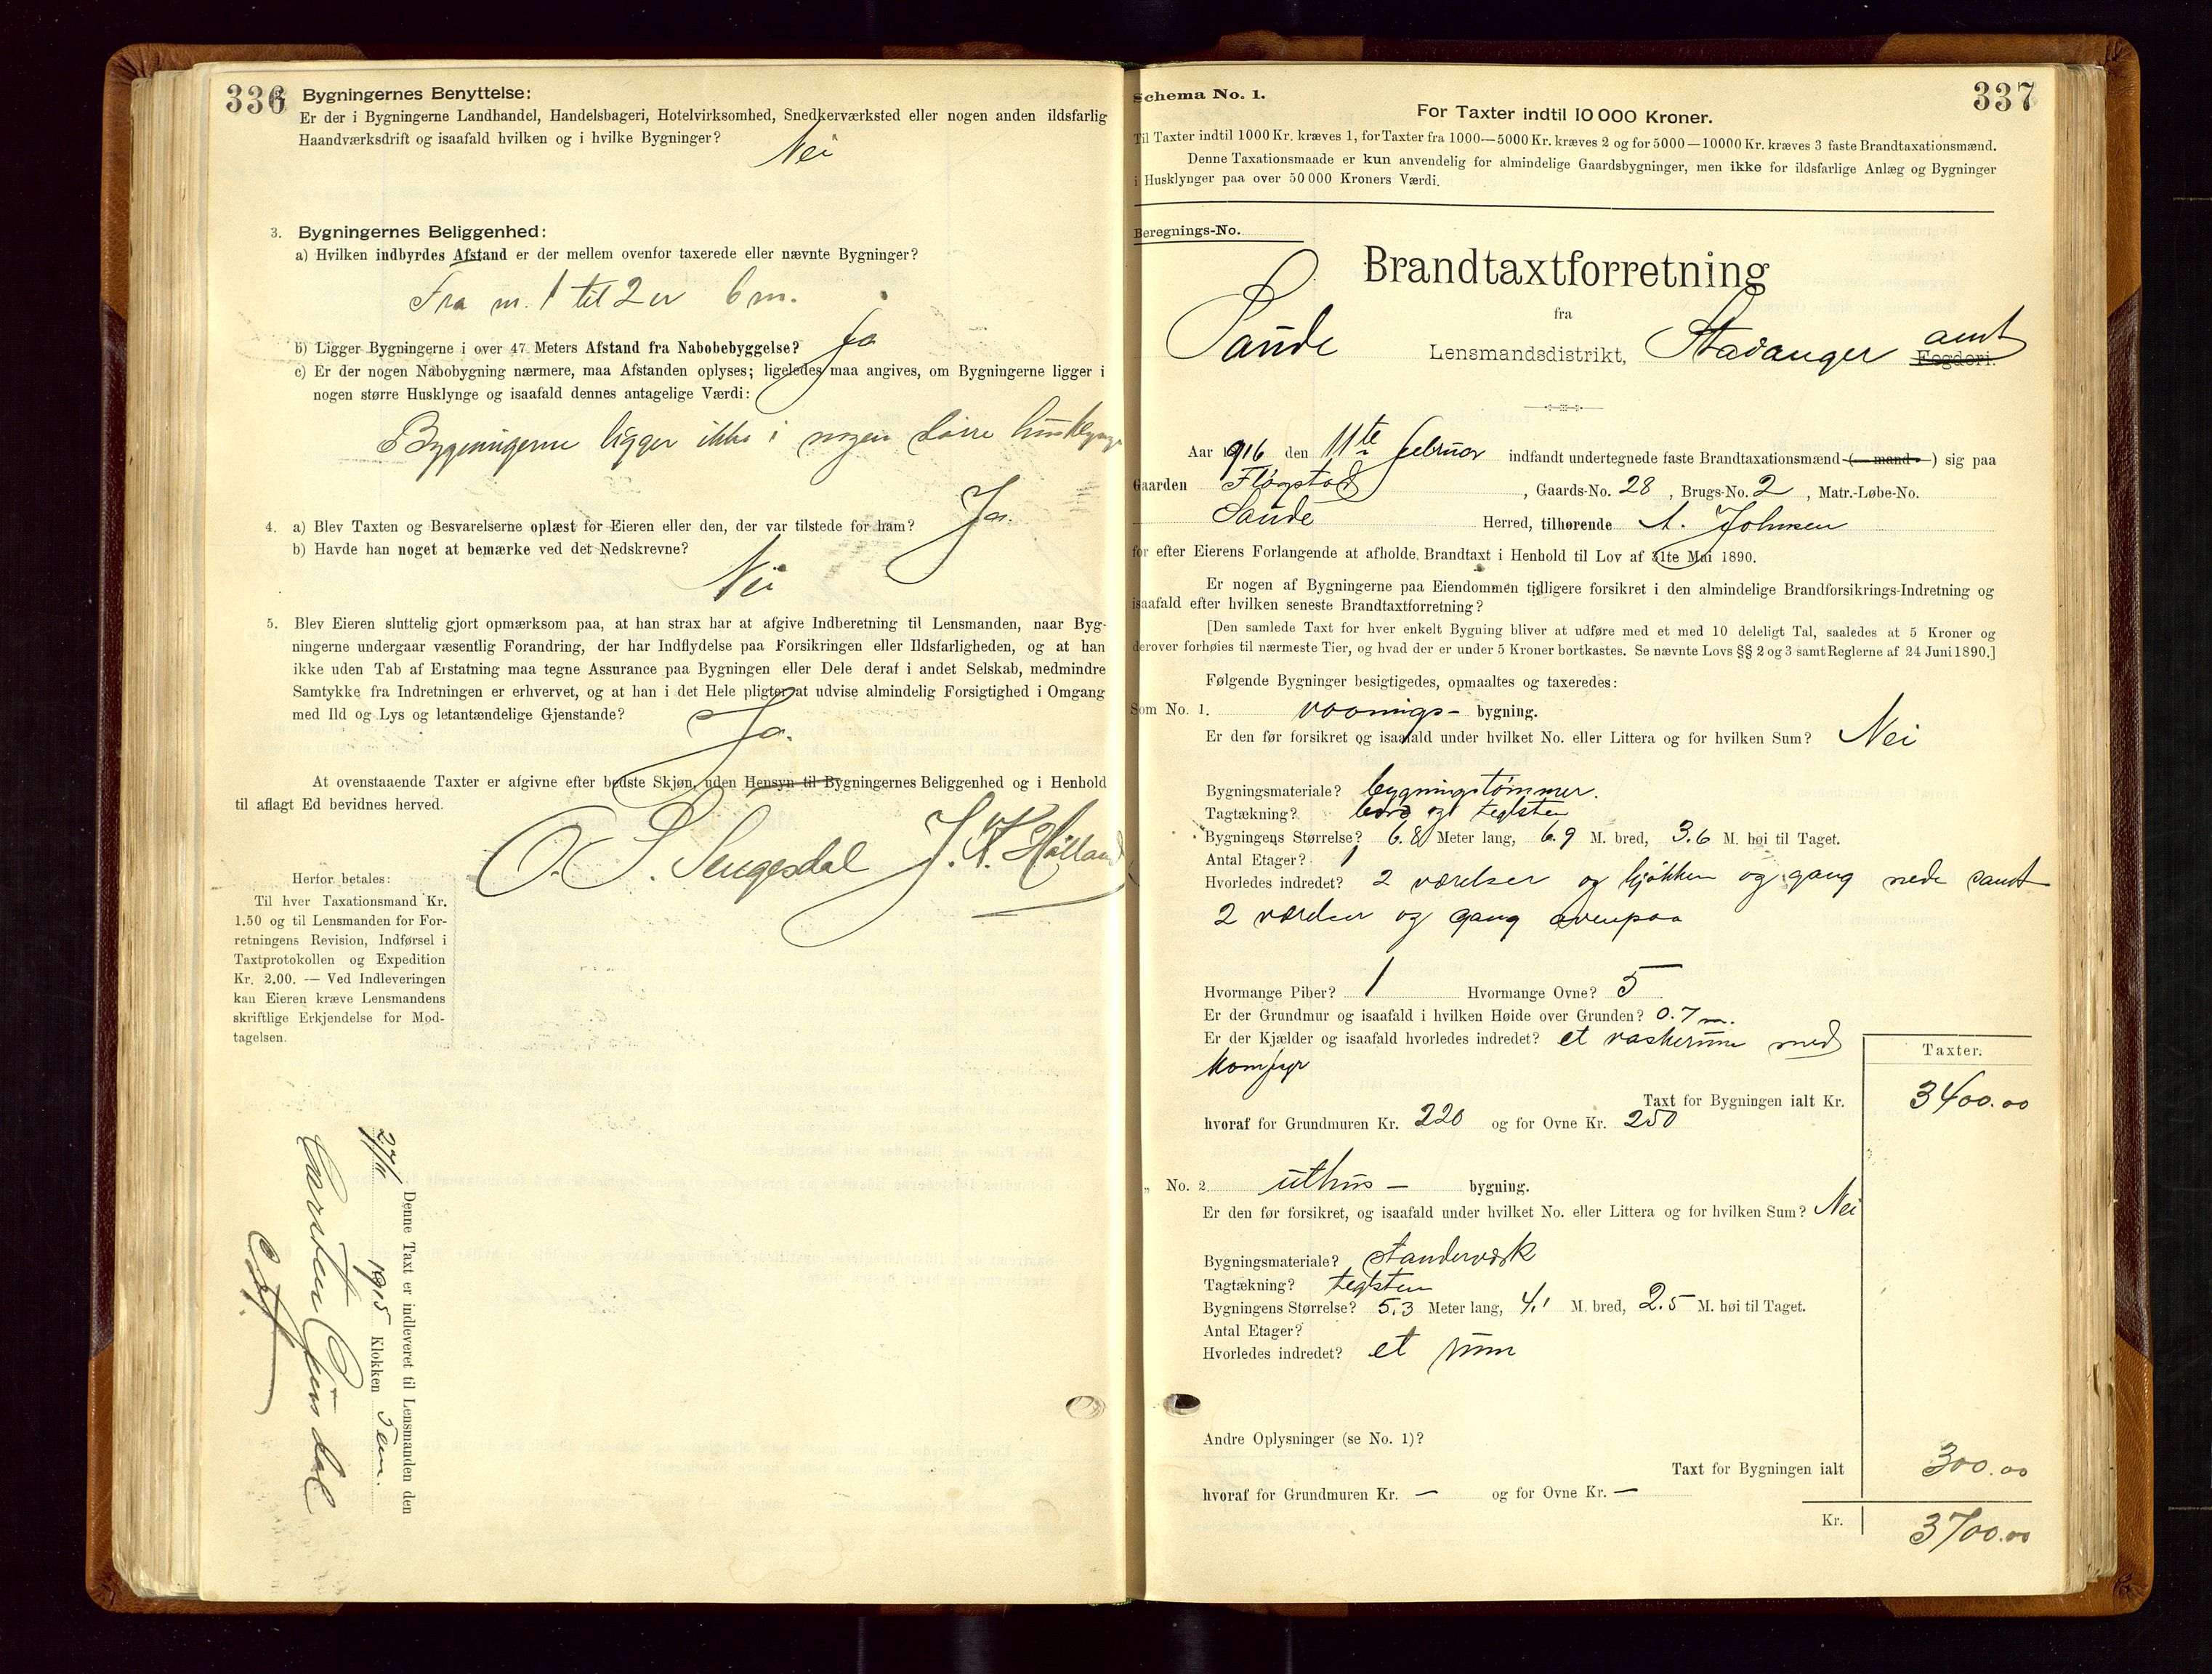 336
Bygningernes Benyttelse:
Er der i Bygningerne Landhandel, Handelsbageri, Hotelvirksomhed, Snedkerværksted eller nogen anden ildsfarlig
Haandværksdrift og isaafald hvilken og i hvilke Bygninger?
Nei
3. Bygningernes Beliggenhed:
a) Hvilken indbyrdes Afstand er der mellem ovenfor taxerede eller nævnte Bygninger?
Fra nr. 1 til 2 er 6 m.
b) Ligger Bygningerne i over 47 Meters Afstand fra Nabobebyggelse? Ja
c) Er der nogen Nabobygning nærmere, maa Afstanden oplyses; ligeledes maa angives, om Bygningerne ligger i
nogen større Husklynge og isaafald dennes antagelige Værdi:
Bygningerne ligger ikke i nogen større husklynge
4. a) Blev Taxten og Besvarelserne oplæst for Eieren eller den, der var tilstede for ham? Ja.
b) Havde han noget at bemærke ved det Nedskrevne?
Nei
5. Blev Eieren sluttelig gjort opmærksom paa, at han strax har at afgive Indberetning til Lensmanden, naar Byg-
ningerne undergaar væsentlig Forandring, der har Indflydelse paa Forsikringen eller Ildsfarligheden, og at han
ikke uden Tab af Erstatning maa tegne Assurance paa Bygningen eller Dele deraf i andet Selskab, medmindre
Samtykke fra Indretningen er erhvervet, og at han i det Hele pligter at udvise almindelig Forsigtighed i Omgang
med Ild og Lys og letantændelige Gjenstande?
Ja.
At ovenstaaende Taxter er afgivne efter bedste Skjøn, uden Hensyn til Bygningernes Beliggenhed og i Henhold
til aflagt Ed bevidnes herved.
O. S. Sengesdal J. K. Hølland
Herfor betales:
Til hver Taxationsmand Kr.
1.50 og til Lensmanden for For-
retningens Revision, Indførsel i
Taxtprotokollen og Expedition
Kr. 2.00. — Ved Indleveringen
kan Eieren kræve Lensmandens
skriftlige Erkjendelse for Mod-
tagelsen.
Denne Taxt er indleveret til Lensmanden den
1915 Klokken
Schema No. 1.
337
For Taxter indtil 10 000 Kroner.
Til Taxter indtil 1000 Kr. kræves 1, for Taxter fra 1000—5000 Kr. kræves 2 og for 5000—10000 Kr. kræves 3 faste Brandtaxationsmænd.
Denne Taxationsmaade er kun anvendelig for almindelige Gaardsbygninger, men ikke for ildsfarlige Anlæg og Bygninger
i Husklynger paa over 50 000 Kroners Værdi.
Beregnings-No.
Brandtaxtforretning
fra
Saude Lensmandsdistrikt, Stavanger amt Fogderi.
Aar 1916 den 11te februar indfandt undertegnede faste Brandtaxationsmænd (—mand—) sig paa
Gaarden Fløgstad, Gaards-No. 28, Brugs-No. 2, Matr.-Løbe-No.
Saude Herred, tilhørende A. Johnsen
for efter Eierens Forlangende at afholde Brandtaxt i Henhold til Lov af 31te Mai 1890.
Er nogen af Bygningerne paa Eiendommen tidligere forsikret i den almindelige Brandforsikrings-Indretning og
isaafald efter hvilken seneste Brandtaxtforretning?
[Den samlede Taxt for hver enkelt Bygning bliver at udføre med et med 10 deleligt Tal, saaledes at 5 Kroner og
derover forhøies til nærmeste Tier, og hvad der er under 5 Kroner bortkastes. Se nævnte Lovs §§ 2 og 3 samt Reglerne af 24 Juni 1890.]
Følgende Bygninger besigtigedes, opmaaltes og taxeredes:
Som No. 1. vaanings- bygning.
Er den før forsikret og isaafald under hvilket No. eller Littera og for hvilken Sum? Nei
Bygningsmateriale? bygningstømmer.
Tagtækning? bord og teglsten
Bygningens Størrelse? 6.8 Meter lang, 6.9 M. bred, 3.6 M. høi til Taget.
Antal Etager? 1
Hvorledes indredet? 2 værelser og kjøkken og gang nede samt
2 værelser og gang ovenpaa
Hvormange Piber? 1 Hvormange Ovne? 5
Er der Grundmur og isaafald i hvilken Høide over Grunden? 0.7 m.
Er der Kjælder og isaafald hvorledes indredet? et vaskerum med
komfyr
Taxter.
Taxt for Bygningen ialt Kr. 3400.00
hvoraf for Grundmuren Kr. 220 og for Ovne Kr. 250
„ No. 2 uthus - bygning.
Er den før forsikret, og isaafald under hvilket No. eller Littera og for hvilken Sum? Nei
Bygningsmateriale? standerværk
Tagtækning? teglsten
Bygningens Størrelse? 5.3 Meter lang, 4.1 M. bred, 2.5 M. høi til Taget.
Antal Etager?
Hvorledes indredet? et rum
Andre Oplysninger (se No. 1)?
Taxt for Bygningen ialt 300.00
hvoraf for Grundmuren Kr. — og for Ovne Kr. —
Kr. 3700.00